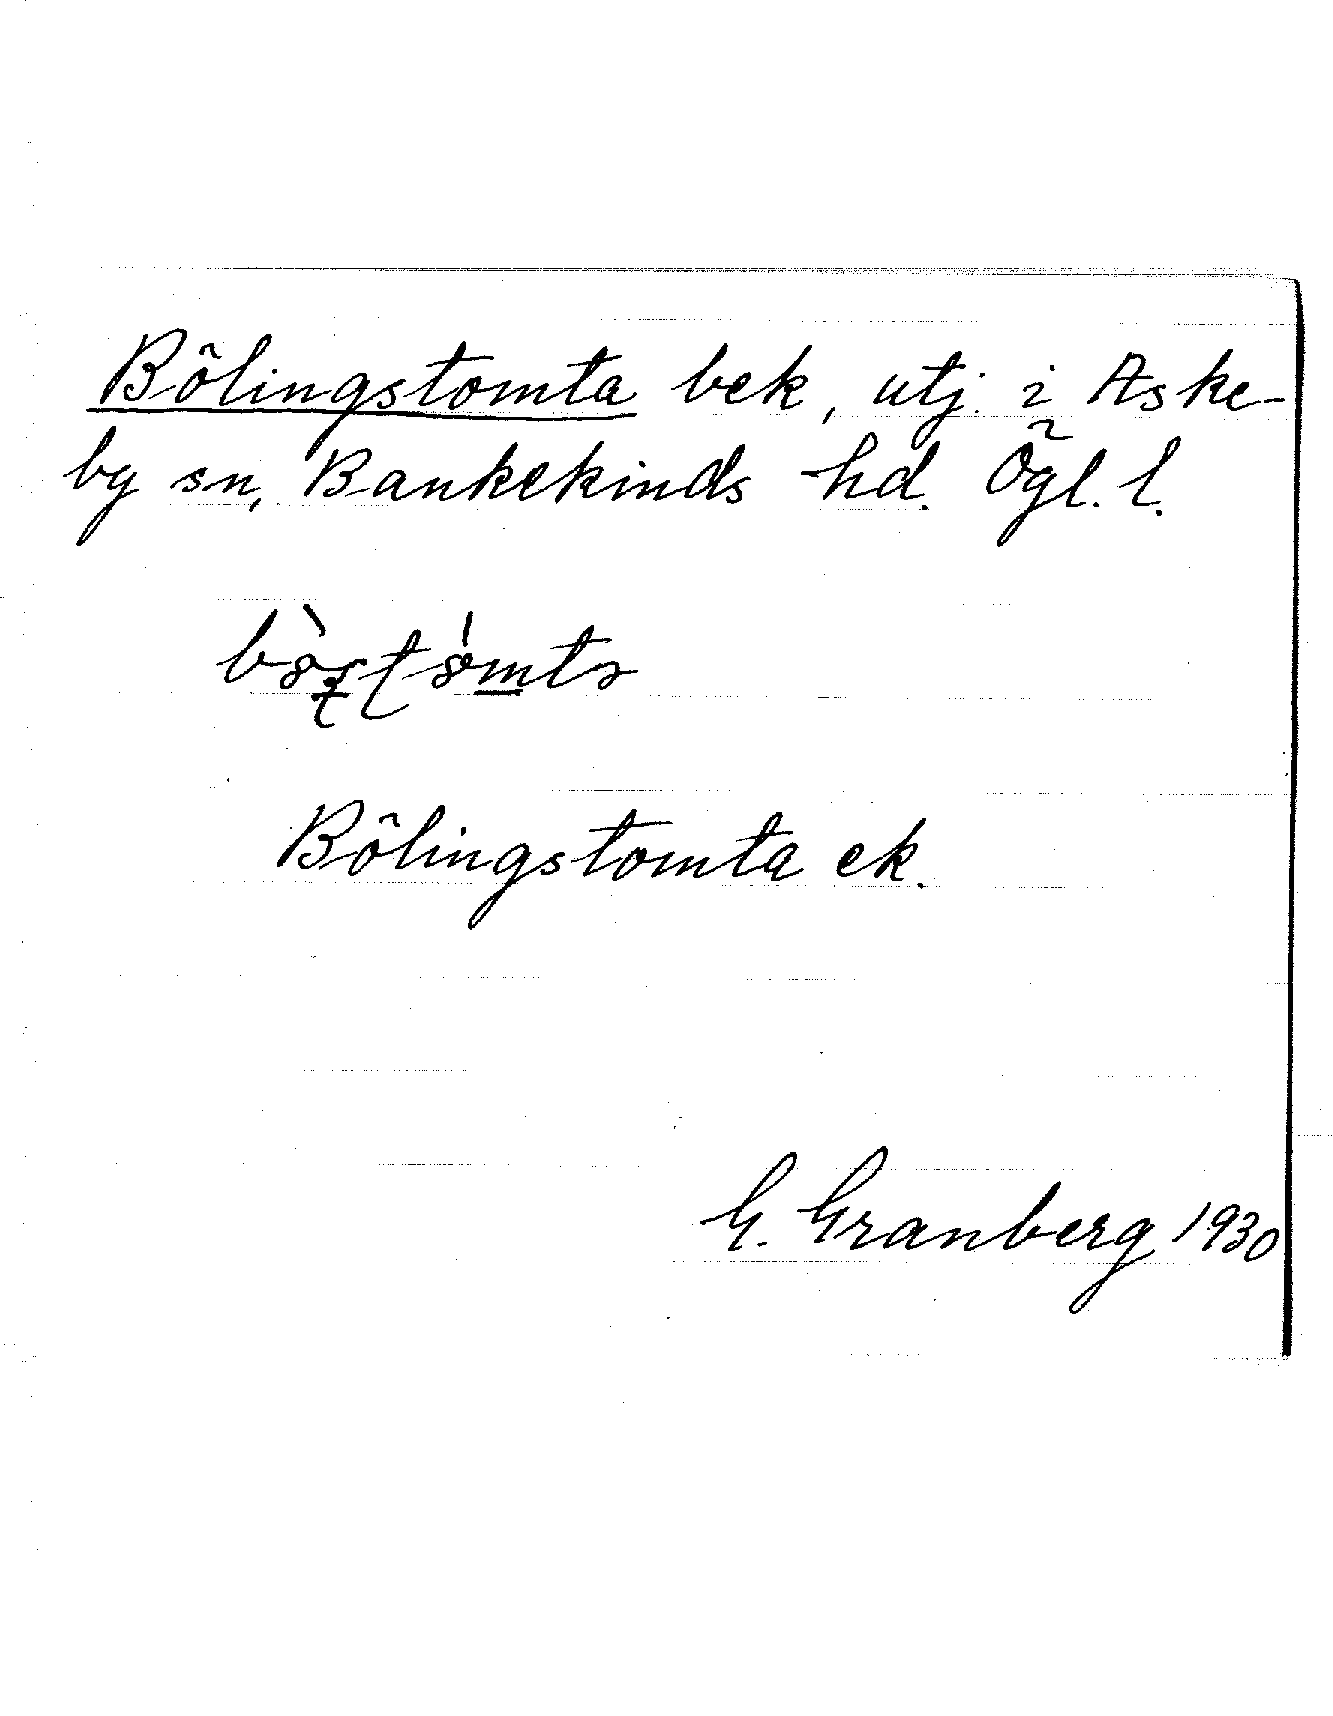 Bölingstomta bek, utj. i Aske-
by sn, Bankekinds hd. Ögl. l.
Bölingstomta ek.
G. Granberg 1930